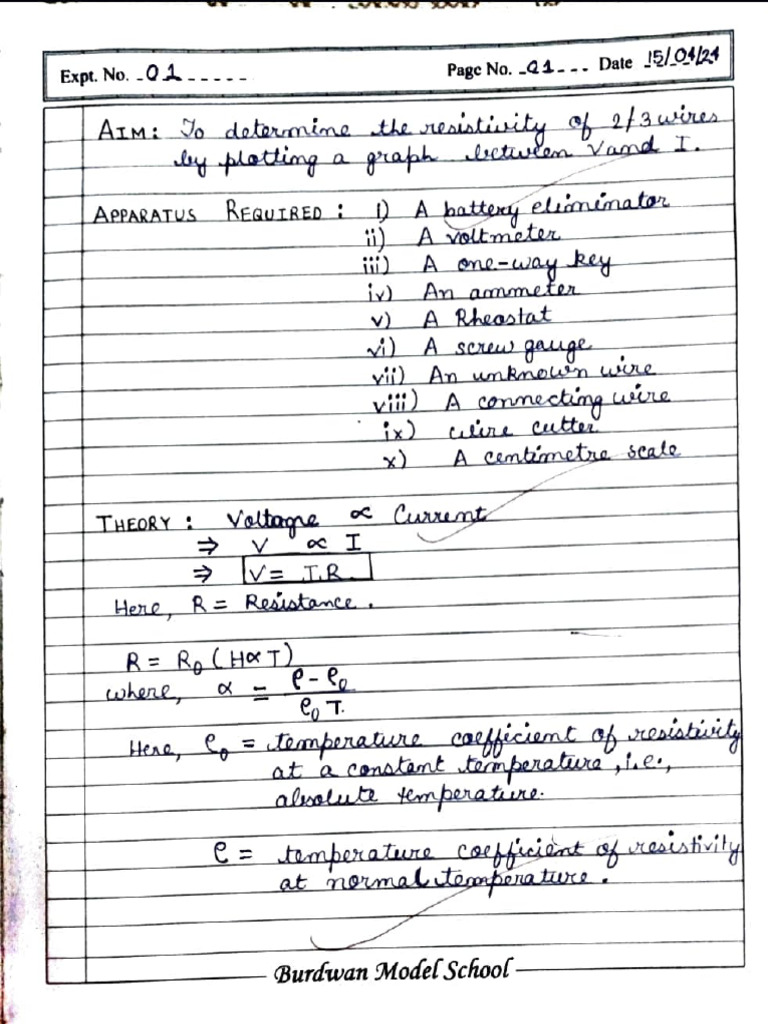 Expt. No. 01 Page No. 01 Date 15/04/24
AIM: To determine the resistivity of 2/3 wires
by plotting a graph between V and I.
APPARATUS REQUIRED: i) A battery eliminator
ii) A voltmeter
iii) A one-way key
iv) An ammeter
v) A Rheostat
vi) A screw gauge
vii) An unknown wire
viii) A connecting wire
ix) Wire cutter
x) A centimetre scale
THEORY: Voltagne ∝ Current
⇒ V ∝ I
⇒ V = I.R.
Here, R = Resistance.
R = R₀ (H∝T)
where, α = ρ - ρ₀
ρ₀ T.
Here, ρ₀ = temperature coefficient of resistivity
at a constant temperature, i.e.,
absolute temperature.
ρ = temperature coefficient of resistivity
at normal temperature.
Burdwan Model School